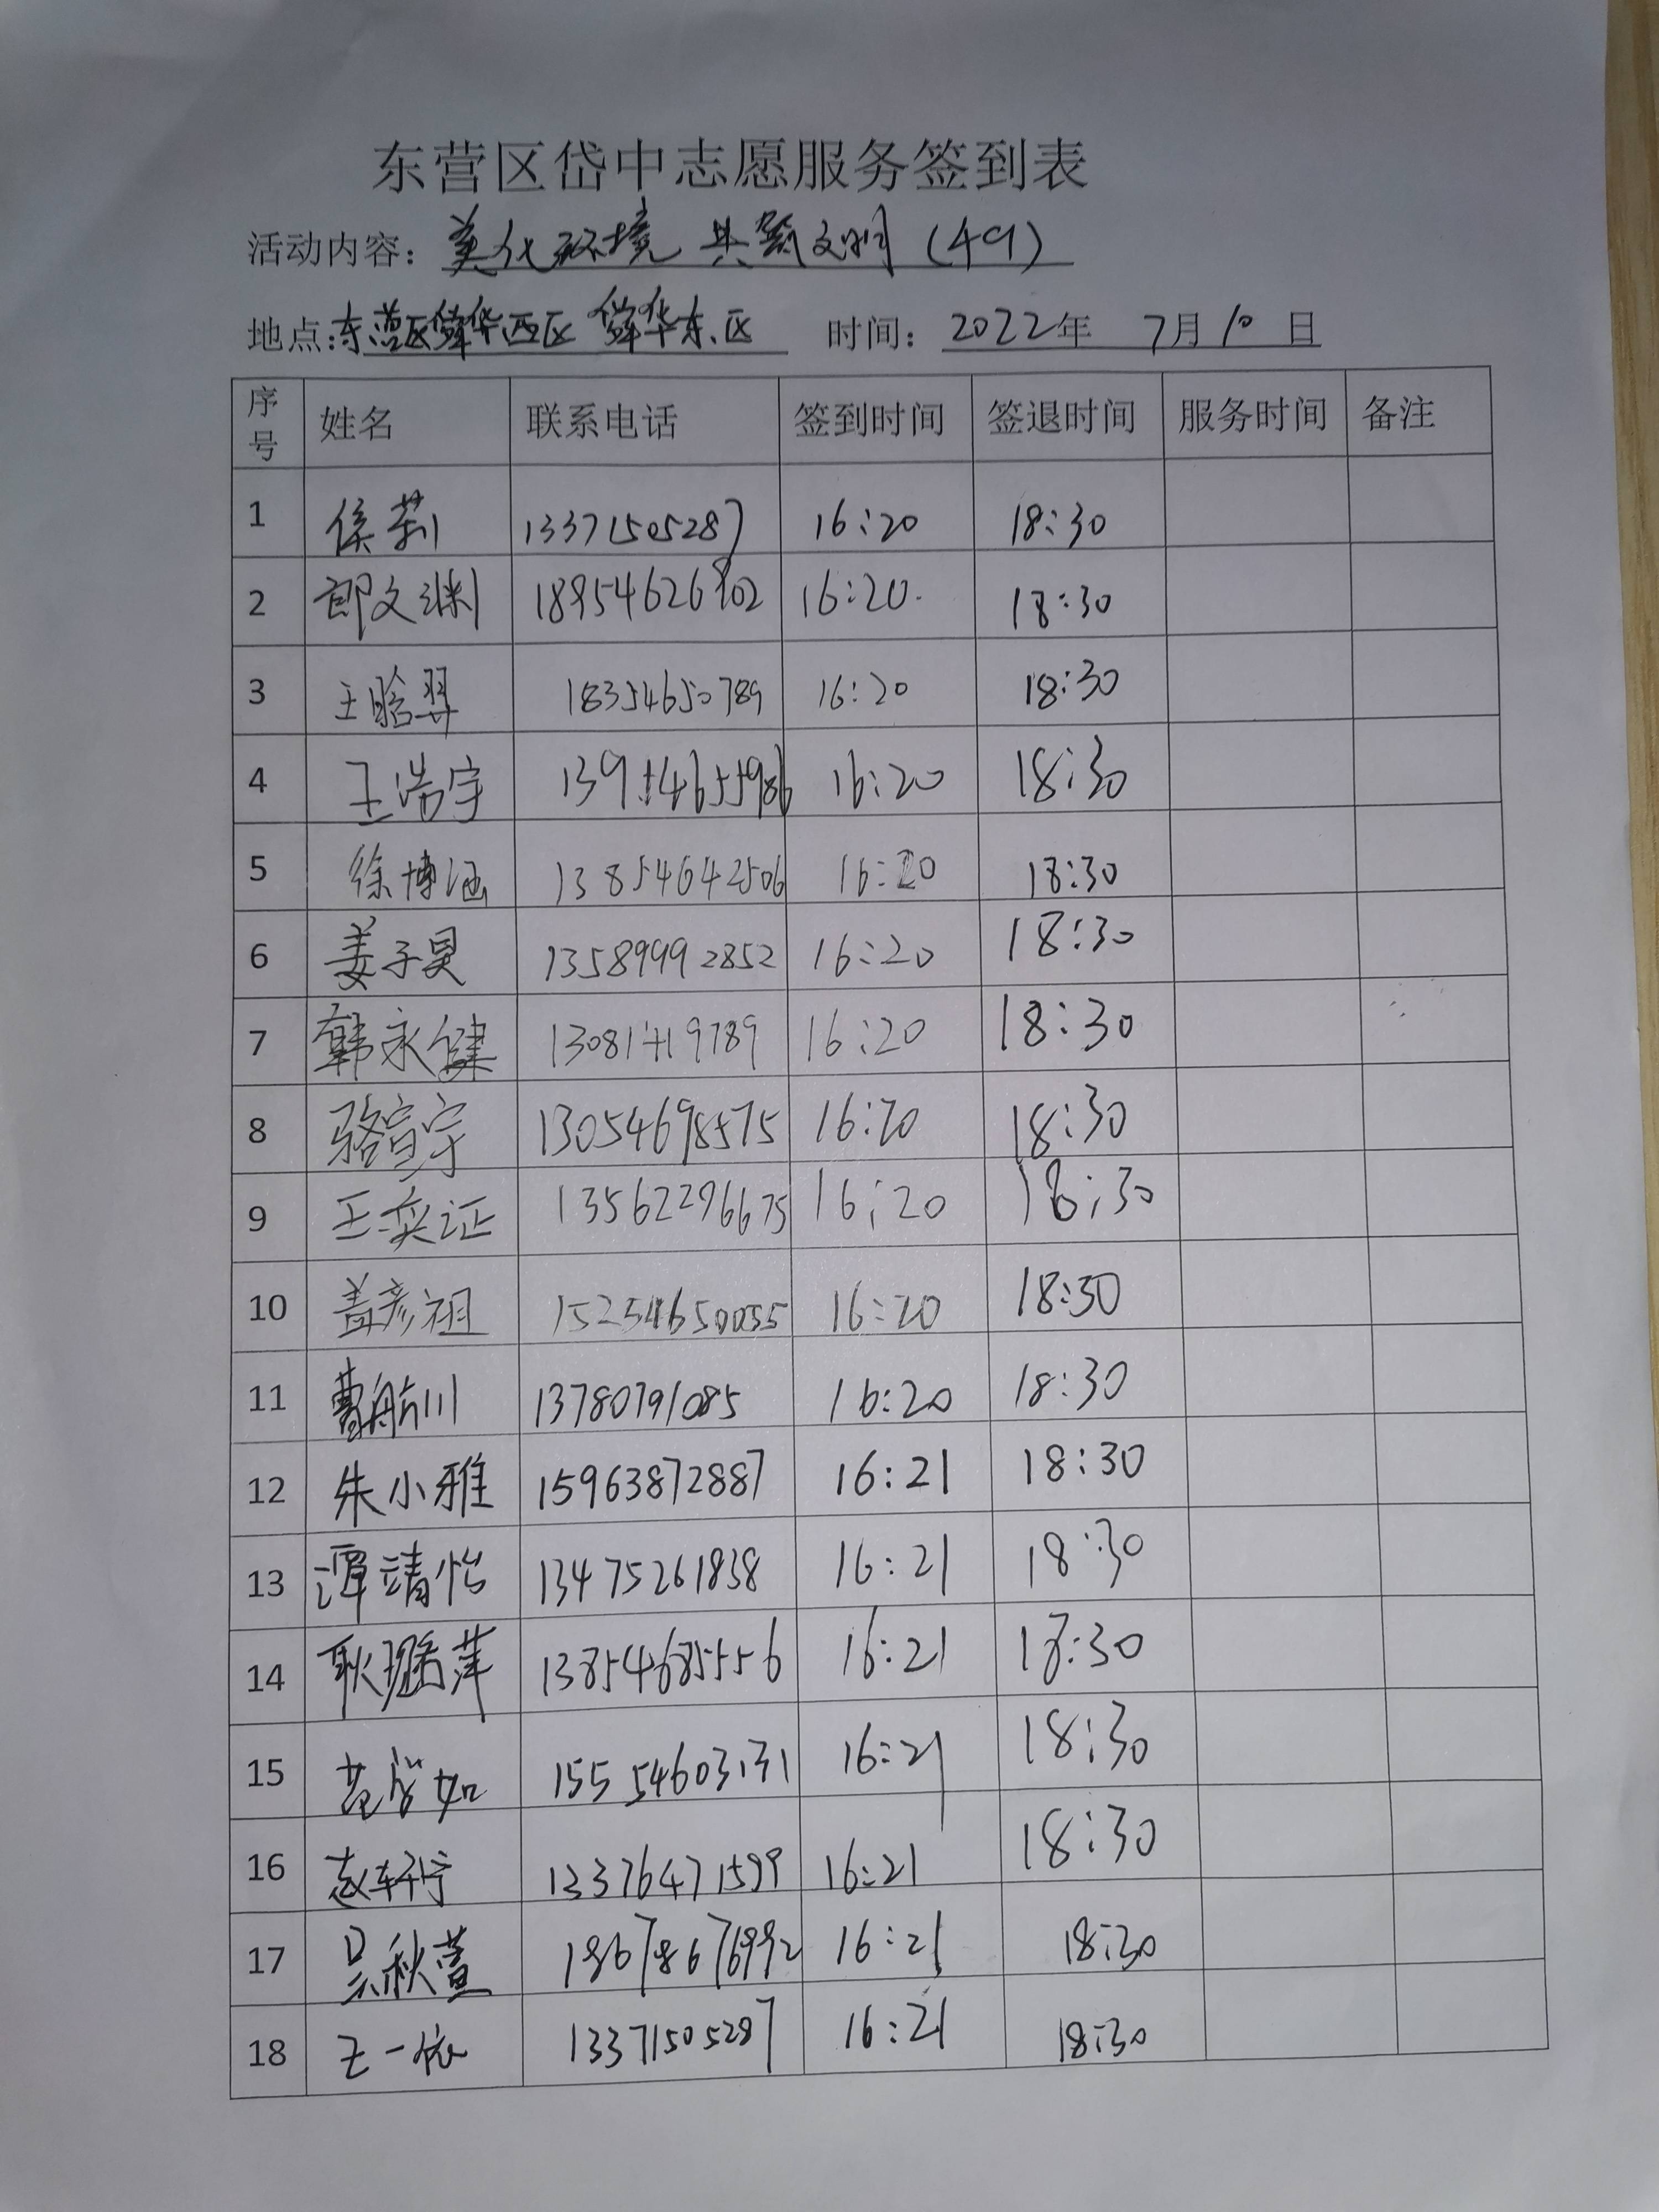 东营区岱中志愿服务签到表
活动内容：美化环境 共创文明（49）
地点：东营区辉华西区 辉华东区 时间：2022年 7月10日
序号 姓名 联系电话 签到时间 签退时间 服务时间 备注
1 侯莉 13371505287 16:20 18:30
2 郎文渊 18954626902 16:20 18:30
3 王晗羿 18354650789 16:20 18:30
4 王浩宇 13954655986 16:20 18:30
5 徐博涵 13854642506 16:20 18:30
6 姜子昊 13589992852 16:20 18:30
7 韩永健 16:20 18:30
8 骆宣宇 13054698575 16:20 18:30
9 王奕证 13562296675 16:20 18:30
10 盖彦祖 15254650055 16:20 18:30
11 曹航川 13780791085 16:20 18:30
12 朱小雅 15963872887 16:21 18:30
13 谭靖怡 13475261838 16:21 18:30
14 耿璐萍 13854685556 16:21 18:30
15 15554603131 16:21 18:30
16 赵轩宁 13376471599 16:21 18:30
17 吴秋萱 18678676992 16:21 18:30
18 王一依 13371505287 16:21 18:30